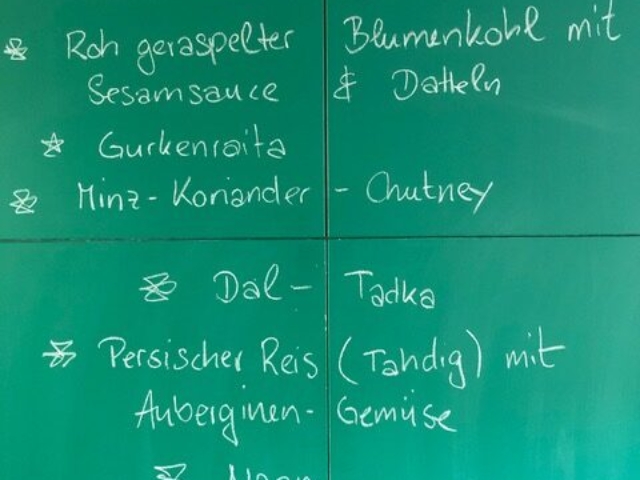 Roh geraspelter Blumenkohl mit
Sesamsauce & Datteln
Gurkenraita
Minz-Koriander - Chutney
Dal - Tadka
Persischer Reis (Tahdig) mit
Auberginen- Gemüse